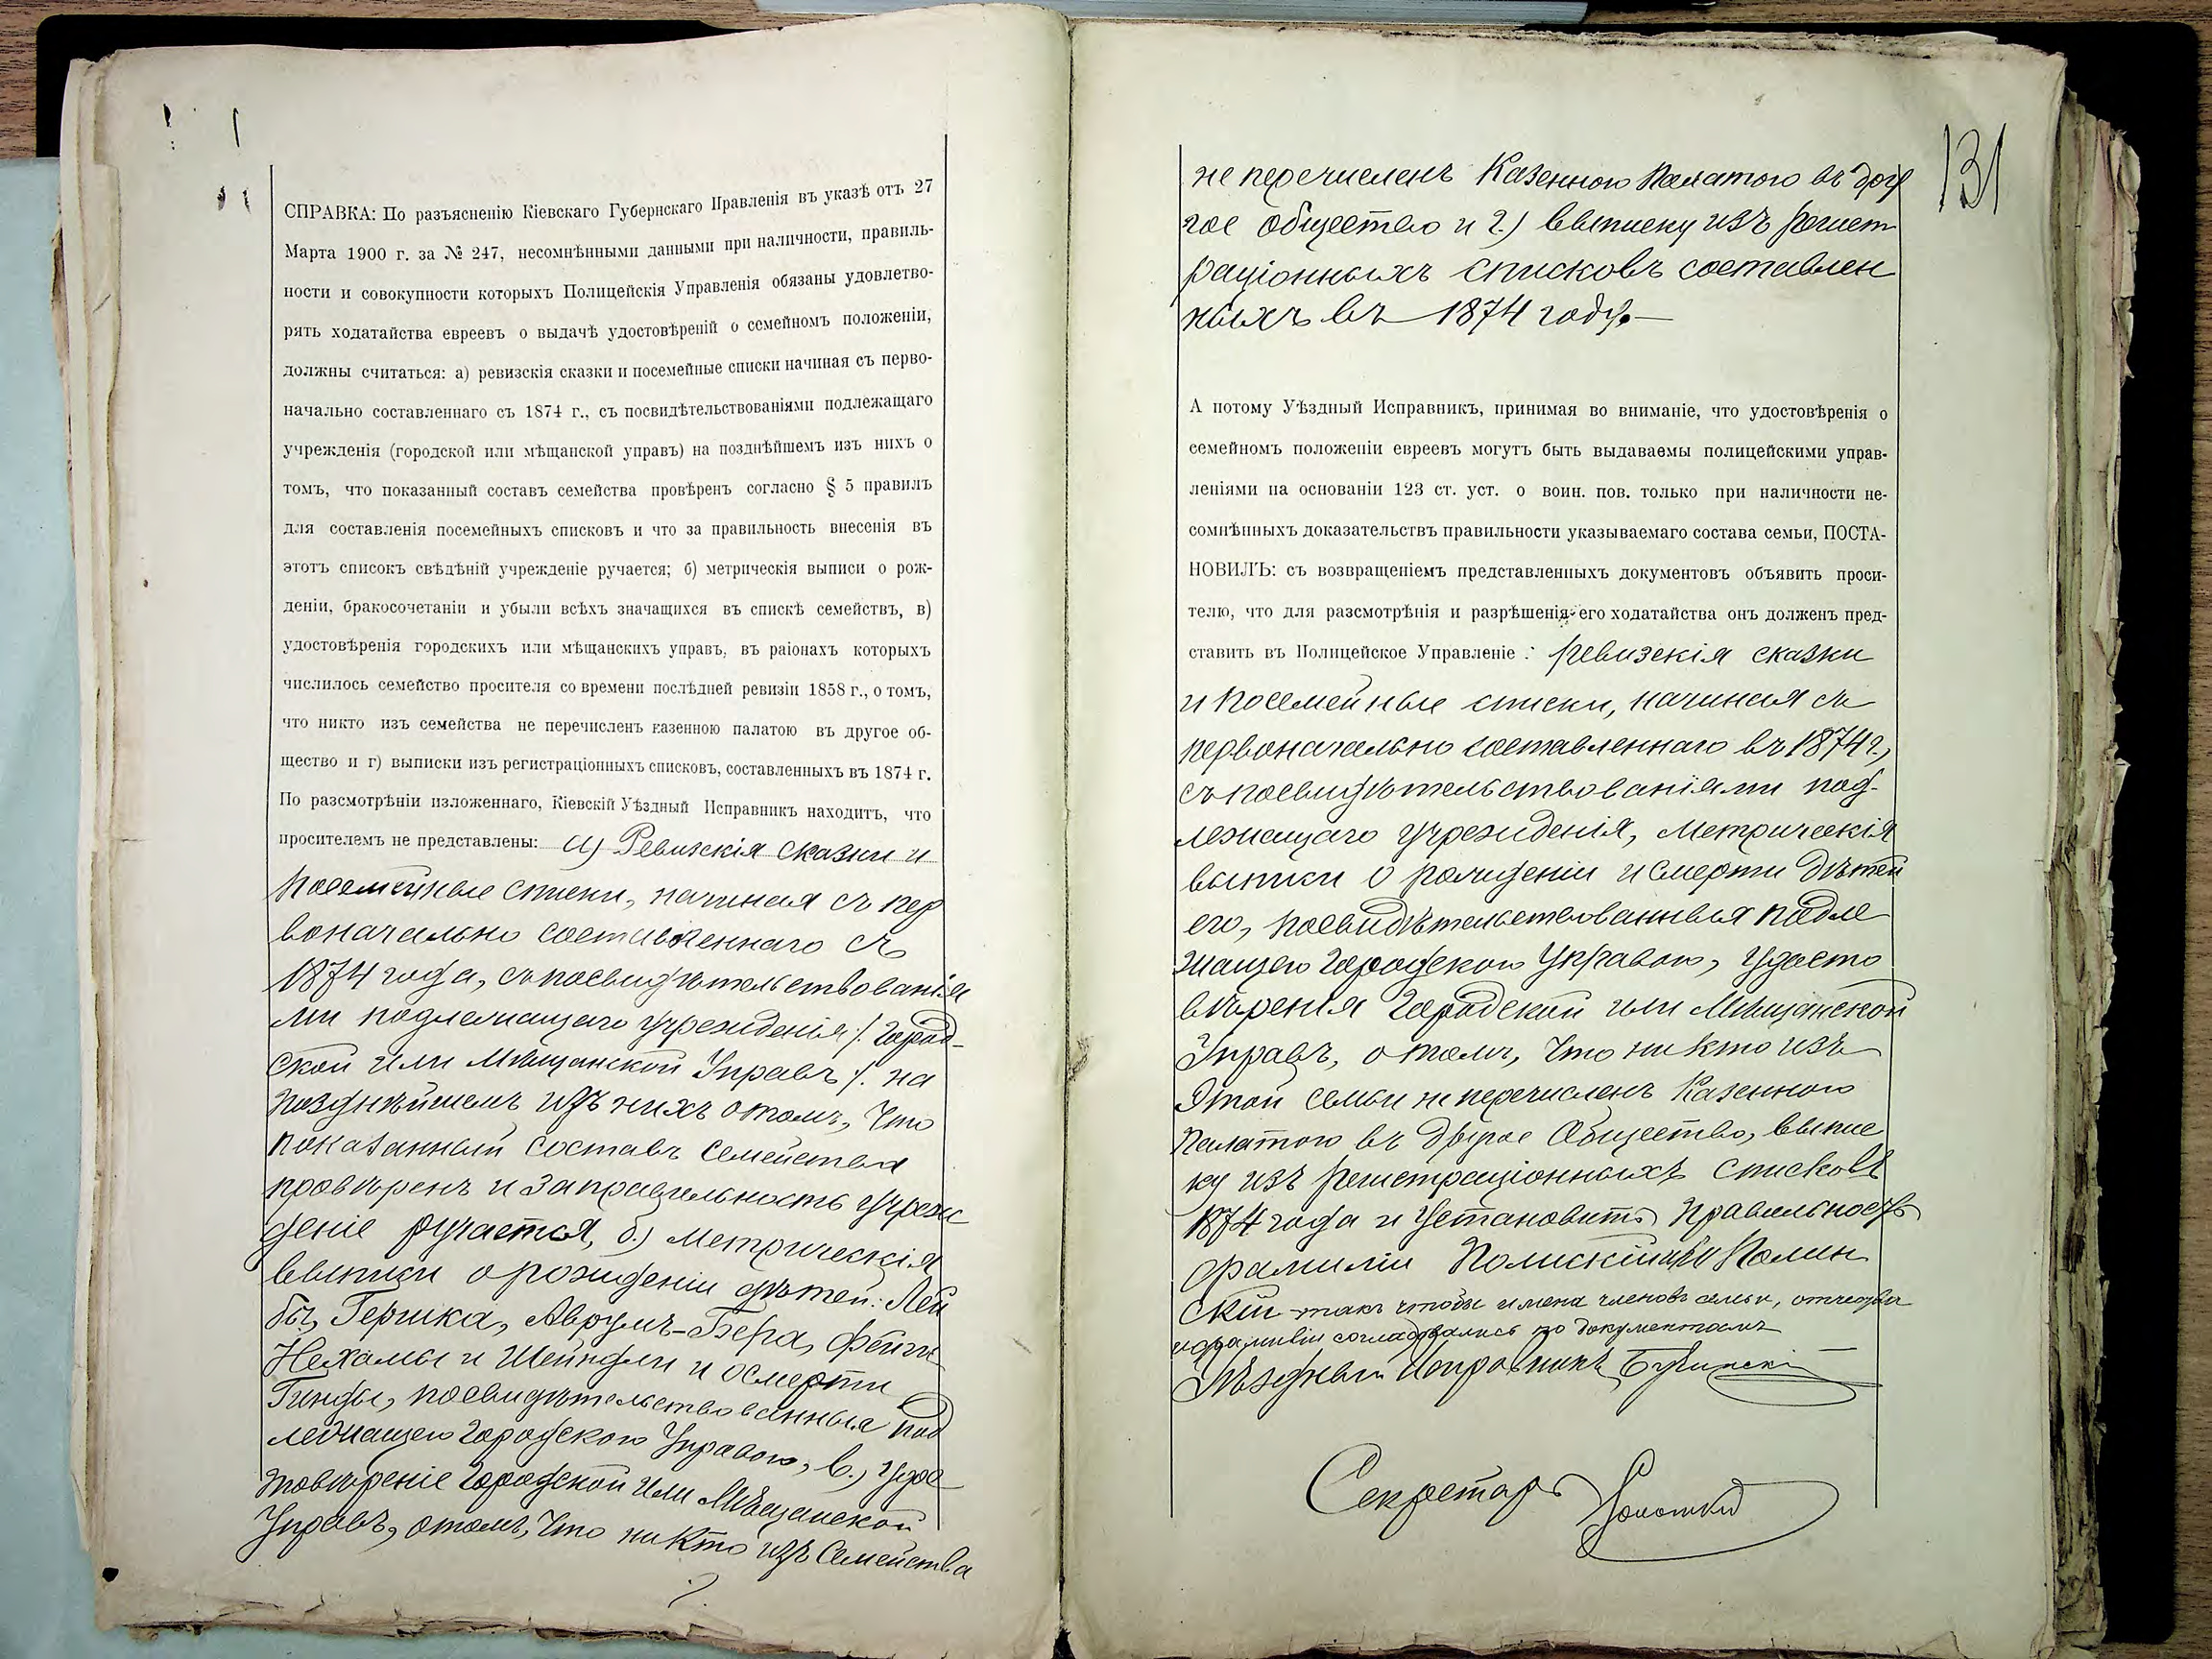 СПРАВКА: По разъясненію Кіевскаго Губернскаго Правленія въ указѣ отъ 27
Марта 1900 г. за № 247, несомнѣнными данными при наличности, правиль-
ности и совокупности которыхъ Полицейскія Управленія обязаны удовлетво-
рять ходатайства евреевъ о выдачѣ удостовѣреній о семейномъ положеніи,
должны считаться: а) ревизскія сказки и посемейные списки начиная съ перво-
начально составленнаго съ 1874 г., съ посвидѣтельствованіями подлежащаго
учрежденія (городской или мѣщанской управъ) на позднѣйшемъ изъ нихъ о
томъ, что показанный составъ семейства провѣренъ согласно § 5 правилъ
для составленія посемейныхъ списковъ и что за правильность внесенія въ
этотъ список свѣдѣній учрежденіе ручается; б) метрическія выписи о рож-
деніи, бракосочетаніи и убыли всѣхъ значащихся въ спискѣ семействъ, в)
удостовѣренія городскихъ или мѣщанскихъ управъ, въ раіонахъ которыхъ
числилось семейство просителя со времени послѣдней ревизіи 1858 г., о томъ,
что никто изъ семейства не перечисленъ казенною палатою въ другое об-
щество и г) выписки изъ регистраціонныхъ списковъ, составленныхъ въ 1874 г.
По разсмотрѣніи изложеннаго, Кіевскій Уѣздный Исправникъ находитъ, что
просителемъ не представлены: а) Ревизскія сказки и
посемейные списки, начиная съ пер
воначально составленнаго съ
1874 года, съ посвидѣтельствованія
ми подлежащаго учрежденія /. Город-
ской или Мѣщанской Управъ /. на
позднѣйшемъ изъ нихъ о томъ, что
показанный составъ семейства
провѣренъ и за правильность учреж
деніе ручается, б.) Метрическія
выписи о рожденіи дѣтей: Лей
бы, Гершка, Аврумъ-Бера, Фейги
Нехамы и Шейндли и о смерти
Гинды, посвидѣтельствованныя под
лежащею Городскою Управою, в.) удос
товѣреніе Городской или Мѣщанской
Управъ, о томъ, что никто изъ семейства
131
не перечисленъ Казенною Палатою въ дру
гое общество и г.) выписку изъ регист
раціонныхъ списковъ составлен
ныхъ въ 1874 году.—
А потому Уѣздный Исправникъ, принимая во вниманіе, что удостовѣренія о
семейномъ положеніи евреевъ могутъ быть выдаваемы полицейскими управ-
леніями на основаніи 123 ст. уст. о воин. пов. только при наличности не-
сомнѣнныхъ доказательствъ правильности указываемаго состава семьи, ПОСТА-
НОВИЛЪ: съ возвращеніемъ представленныхъ документовъ объявить проси-
телю, что для разсмотрѣнія и разрѣшенія его ходатайства онъ долженъ пред-
ставить въ Полицейское Управленіе: ревизскія сказки
и посемейные списки, начиная съ
первоначально составленнаго въ 1874 г.,
съ посвидѣтельствованіями под-
лежащаго учрежденія, Метрическія
выписи о рожденіи и смерти дѣтей
его, посвидѣтельствованныя подле
жащею Городскою Управою, удосто
вѣренія Городской или Мѣщанской
Управъ, о томъ, что никто изъ
этой семьи не перечисленъ Казенною
Палатою въ другое Общество, выпис
ку изъ регистраціонныхъ списковъ
1874 года и установить правильность
фамиліи Полин
скій такъ чтобы имена членовъ семьи, отчества
и фамиліи согласовались по документамъ
Уѣздный Исправникъ
Секретарь